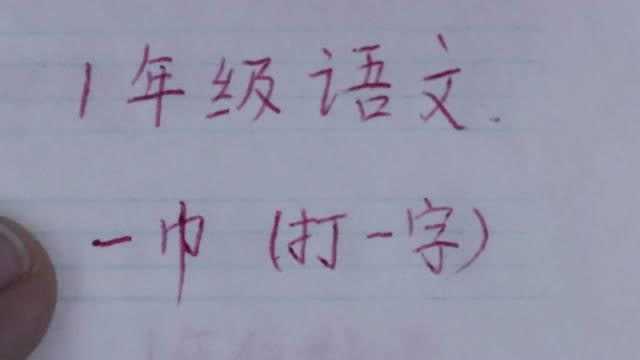 1年级语文.
一巾 (打一字)